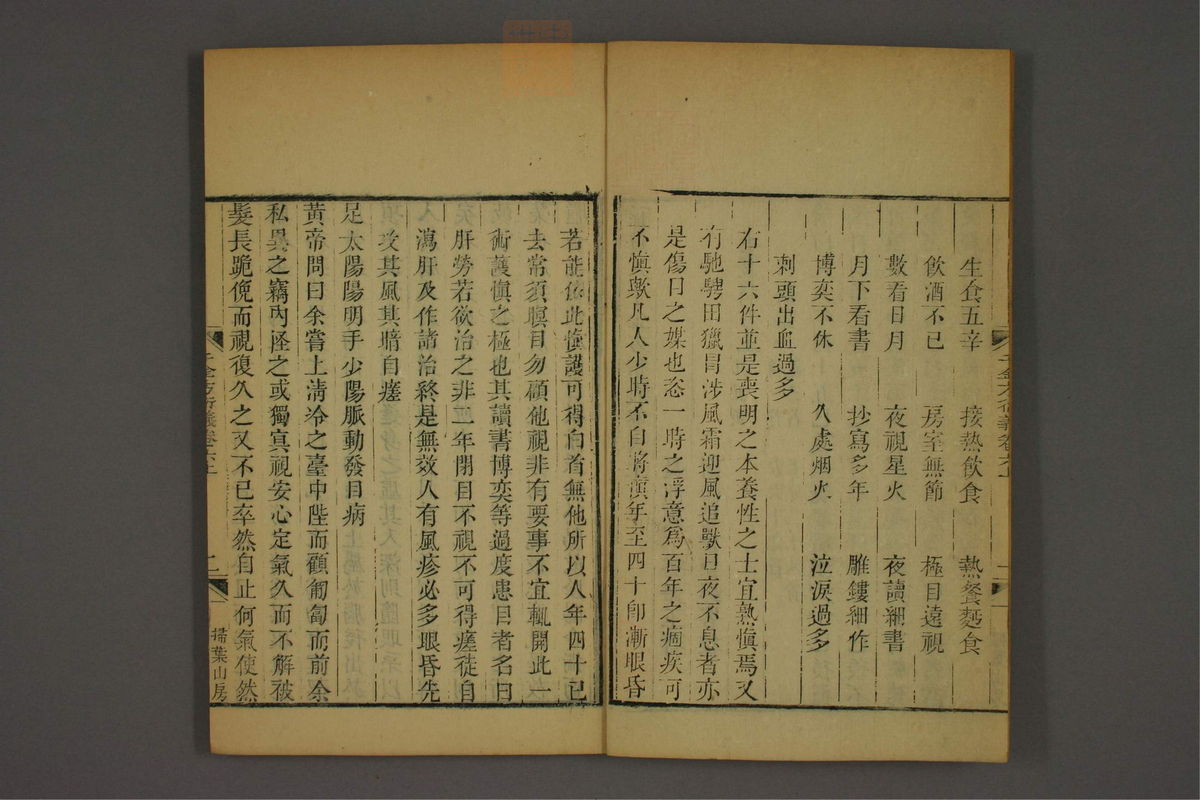 生食五辛　接熱飲食　熱餐麪食
飲酒不已　房室無節　極目遠視
數看日月　夜視星火　夜讀細書
月下看書　抄寫多年　雕鏤細作
博奕不休　久處烟火　泣淚過多
刺頭出血過多
右十六件並是喪明之本養性之士宜熟慎焉又
有馳騁田獵冒涉風霜迎風追獸日夜不息者亦
是傷目之媒也恣一時之浮意爲百年之痼疾可
不慎歟凡人少時不自將慎年至四十即漸眼昏
若能依此慎護可得白首無他所以人年四十已
去常須瞑目勿顧他視非有要事不宜輒開此一
術護慎之極也其讀書博奕等過度患目者名曰
肝勞若欲治之非三年閉目不視不可得瘥徒自
瀉肝及作諸治終是無效人有風疹必多眼昏先
攻其風其暗自瘥
足太陽陽明手少陽脈動發目病
黃帝問曰余嘗上清泠之臺中陛而顧匍匐而前余
私異之竊內怪之或獨寘視安心定氣久而不解被
髮長跪俛而視復久之又不已卒然自止何氣使然
千金方衍義卷六上
二
掃葉山房